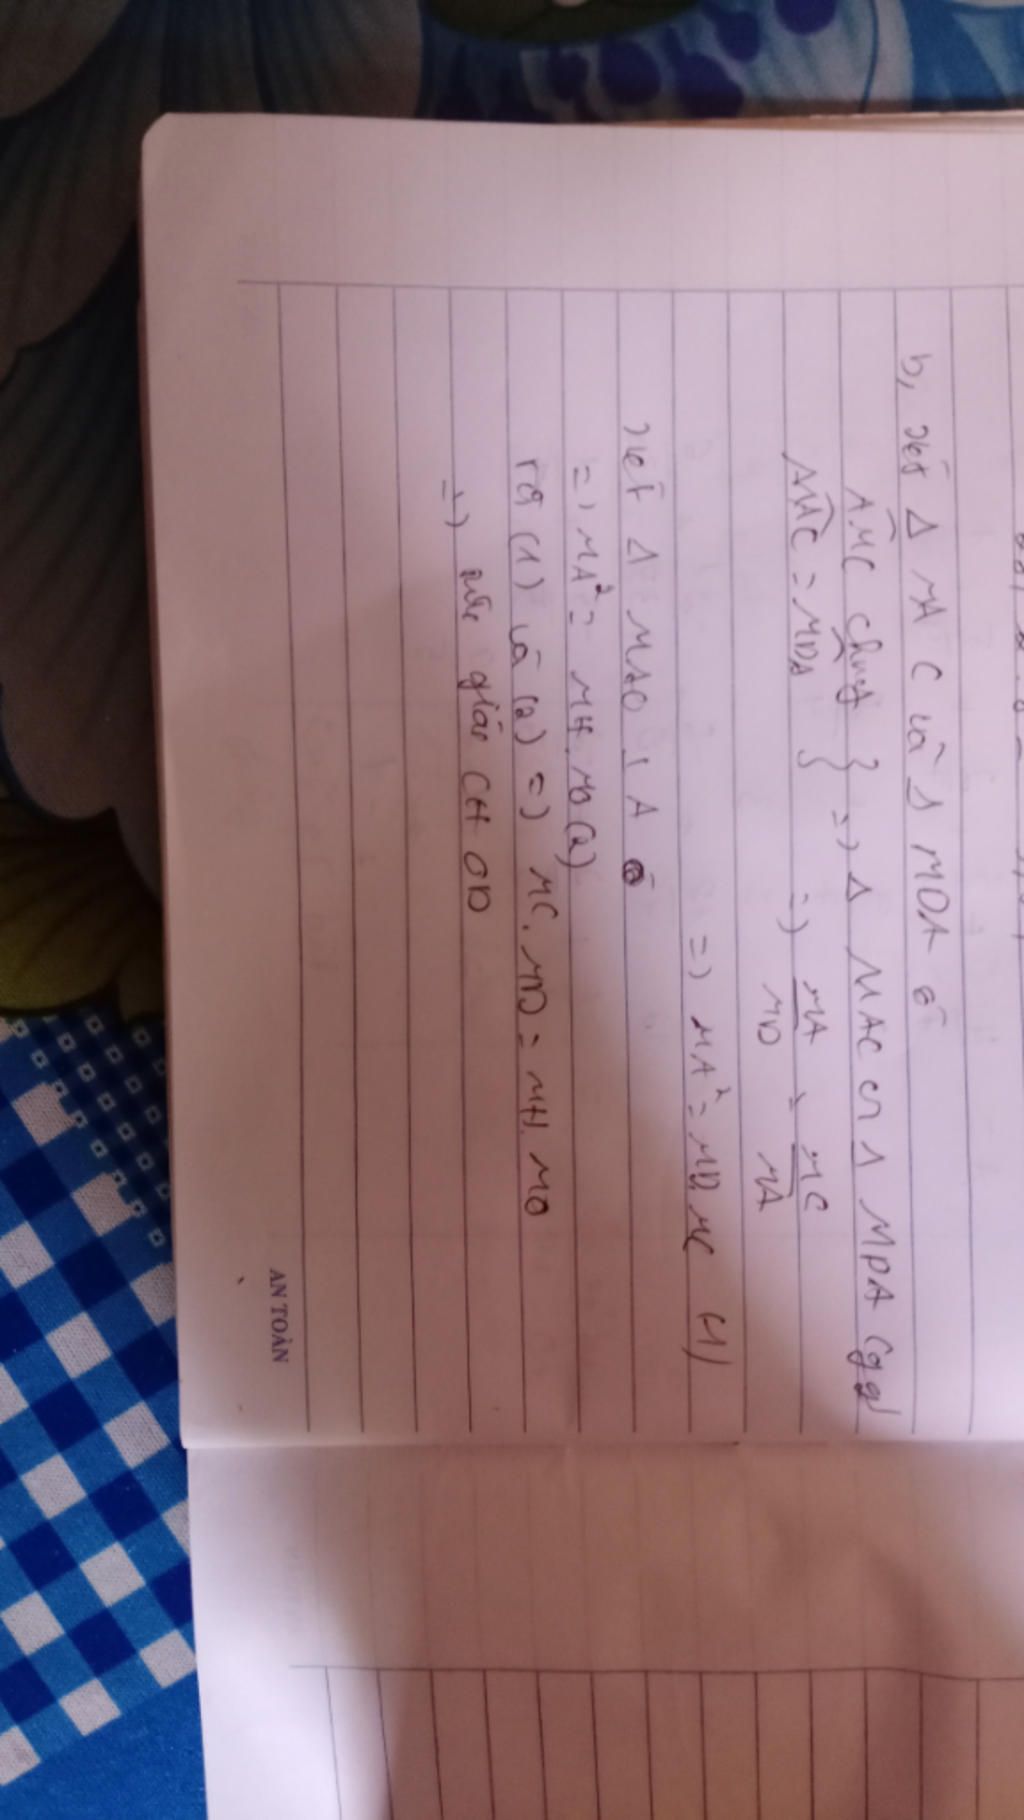 b, xét Δ MAC và Δ MDA có
AMC chung } => Δ MAC ∽ Δ MDA (gg)
MAC = MDA }
=> MA/MD = MC/MA
=> MA² = MD.MC (1)
xét Δ MAO ⊥ A có
=> MA² = MH.MO (2)
Từ (1) và (2) => MC.MD = MH.MO
=> tứ giác CHOD
AN TOÀN